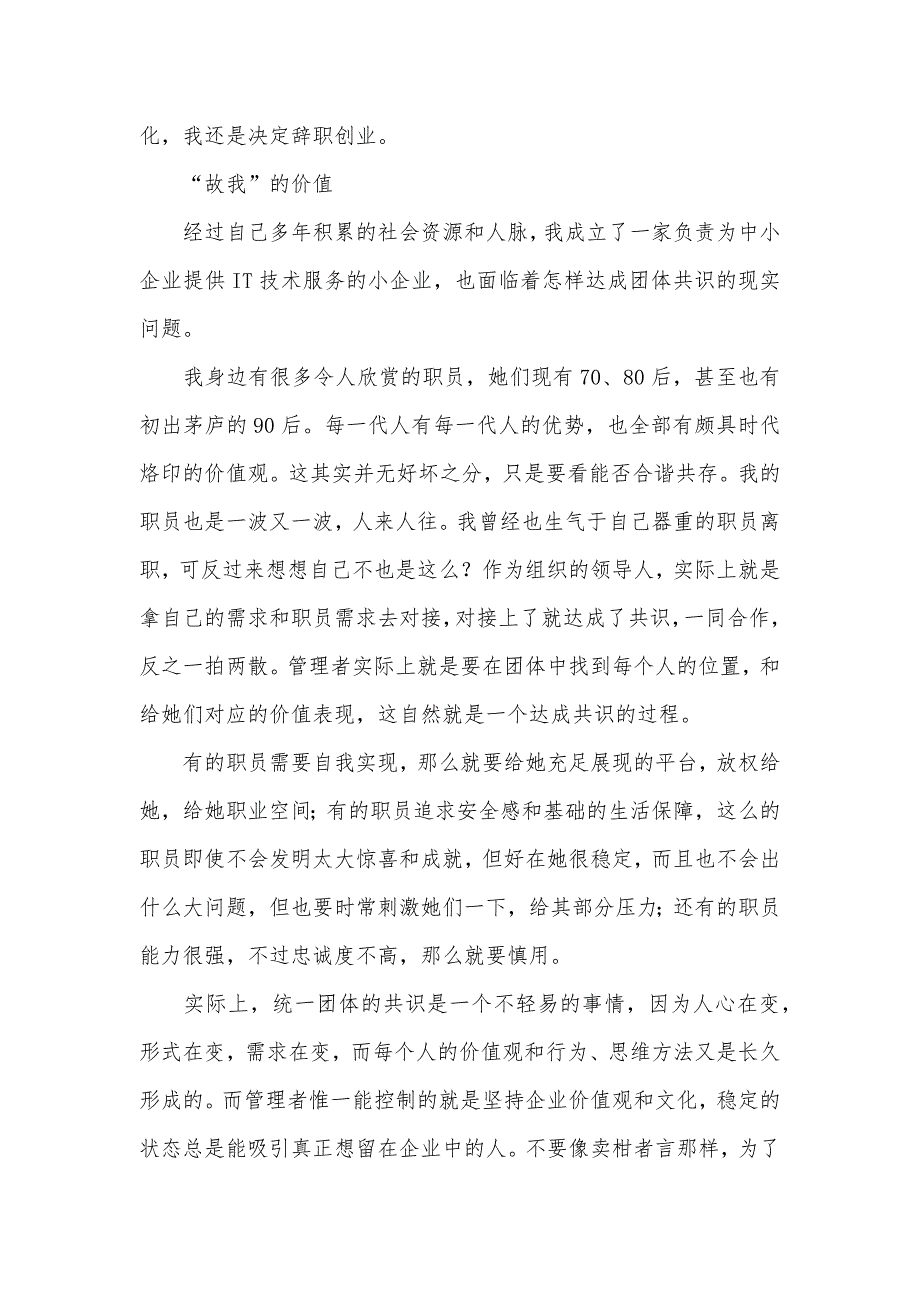 化，我还是决定辞职创业。
“故我”的价值
经过自己多年积累的社会资源和人脉，我成立了一家负责为中小
企业提供 IT 技术服务的小企业，也面临着怎样达成团体共识的现实
问题。
我身边有很多令人欣赏的职员，她们现有 70、80 后，甚至也有
初出茅庐的 90 后。每一代人有每一代人的优势，也全部有颇具时代
烙印的价值观。这其实并无好坏之分，只是要看能否合谐共存。我的
职员也是一波又一波，人来人往。我曾经也生气于自己器重的职员离
职，可反过来想想自己不也是这么？作为组织的领导人，实际上就是
拿自己的需求和职员需求去对接，对接上了就达成了共识，一同合作，
反之一拍两散。管理者实际上就是要在团体中找到每个人的位置，和
给她们对应的价值表现，这自然就是一个达成共识的过程。
有的职员需要自我实现，那么就要给她充足展现的平台，放权给
她，给她职业空间；有的职员追求安全感和基础的生活保障，这么的
职员即使不会发明太大惊喜和成就，但好在她很稳定，而且也不会出
什么大问题，但也要时常刺激她们一下，给其部分压力；还有的职员
能力很强，不过忠诚度不高，那么就要慎用。
实际上，统一团体的共识是一个不轻易的事情，因为人心在变，
形式在变，需求在变，而每个人的价值观和行为、思维方法又是长久
形成的。而管理者惟一能控制的就是坚持企业价值观和文化，稳定的
状态总是能吸引真正想留在企业中的人。不要像卖柑者言那样，为了